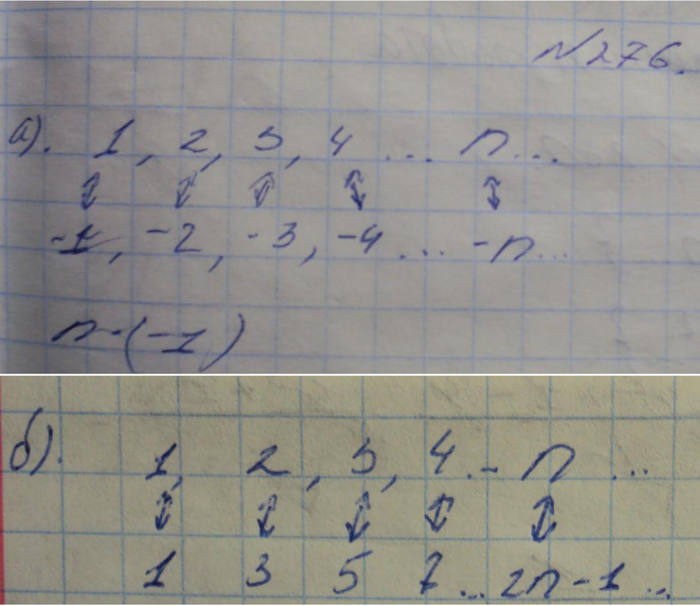 №276.
а). 1, 2, 3, 4 ... n ...
↕ ↕ ↕ ↕ ↕
-1, -2, -3, -4 ... -n ...
n·(-1)
б). 1, 2, 3, 4 .. n ...
↕ ↕ ↕ ↕ ↕
1 3 5 7 ... 2n-1 ...